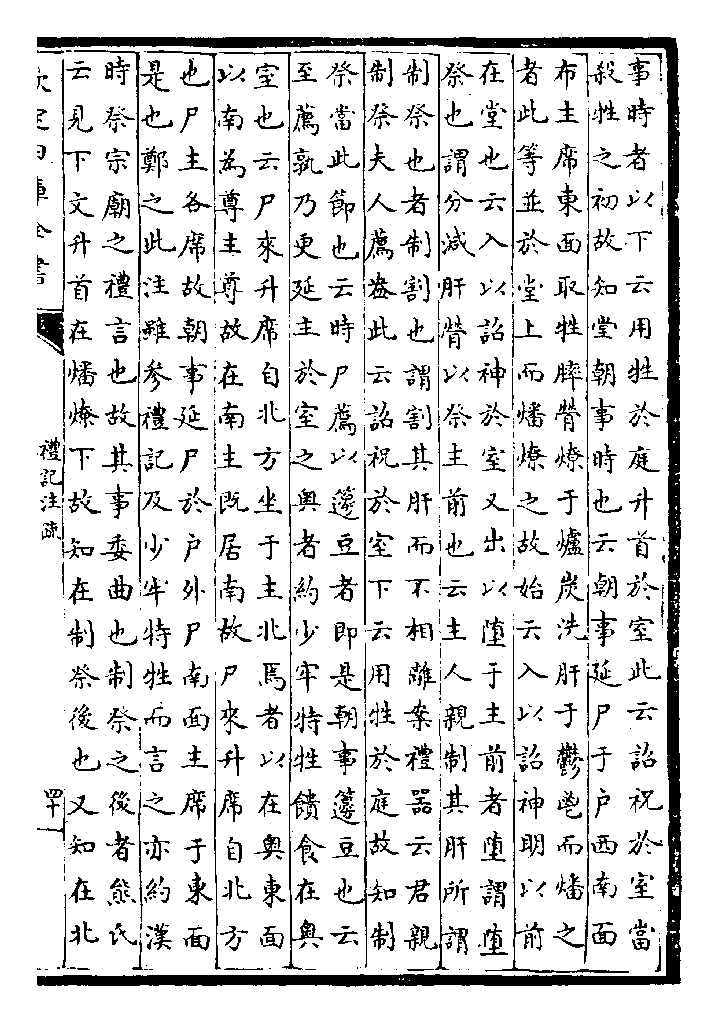 事時者以下云用牲於庭升首於室此云詔祝於室當
殺牲之初故知堂朝事時也云朝事延尸于户西南面
布主席東面取牲膟膋燎于爐炭洗肝于鬱鬯而燔之
者此等並於堂上而燔燎之故始云入以詔神明以前
在堂也云入以詔神於室又出以堕于主前者堕謂堕
祭也謂分減肝膋以祭主前也云主人親制其肝所謂
制祭也者制割也謂割其肝而不相離案禮器云君親
制祭夫人薦盎此云詔祝於室下云用牲於庭故知制
祭當此節也云時尸薦以籩豆者即是朝事籩豆也云
至薦孰乃更延主於室之奥者約少牢特牲饋食在奥
室也云尸來升席自北方坐于主北焉者以在奥東面
以南為尊主尊故在南主既居南故尸來升席自北方
也尸主各席故朝事延尸於户外尸南面主席于東面
是也鄭之此注雖参禮記及少牢特牲而言之亦約漢
時祭宗廟之禮言也故其事委曲也制祭之後者熊氏
云見下文升首在燔燎下故知在制祭後也又知在北
欽定四庫全書
禮記注疏
四十一